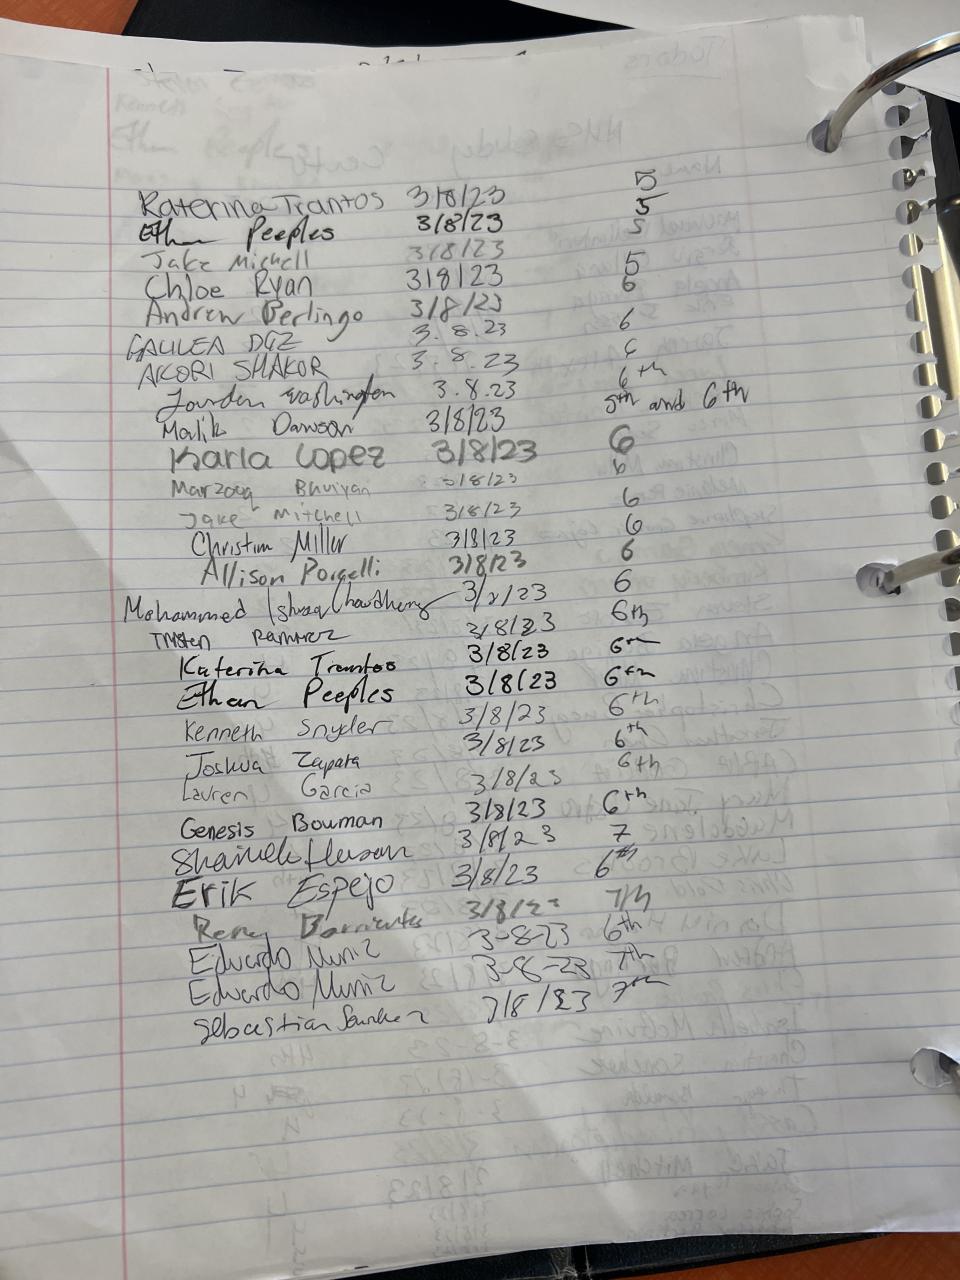 Katerina Trantos 3/8/23 5
Ethan Peeples 3/8/23 5
Jake Michell 3/8/23 5
Chloe Ryan 3/8/23 5
Andrew Berlingo 3/8/23 6
GALILEA DGZ 3.8.23 6
AKORI SHAKUR 3.8.23 6
Jourden Washington 3.8.23 6th
Malik Dawson 3/8/23 5th and 6th
Karla Lopez 3/8/23 6
Marzooq Bhuiyan 3/8/23 6
Jake Mitchell 3/8/23 6
Christian Miller 3/8/23 6
Allison Porcelli 3/8/23 6
Mohammed Ishraq Chowdhury 3/2/23 6
Tristen Ramirez 3/8/23 6th
Katerina Trantos 3/8/23 6th
Ethan Peeples 3/8/23 6th
Kenneth Snyder 3/8/23 6th
Joshua Zapata 3/8/23 6th
Lauren Garcia 3/8/23 6th
Genesis Bouman 3/8/23 6th
3/8/23 7
Erik Espejo 3/8/23 6th
Remy Barrientos 3/8/23 7th
Eduardo Muniz 3-8-23 6th
Eduardo Muniz 3-8-23 7th
Sebastian Sanchez 3/8/23 7th